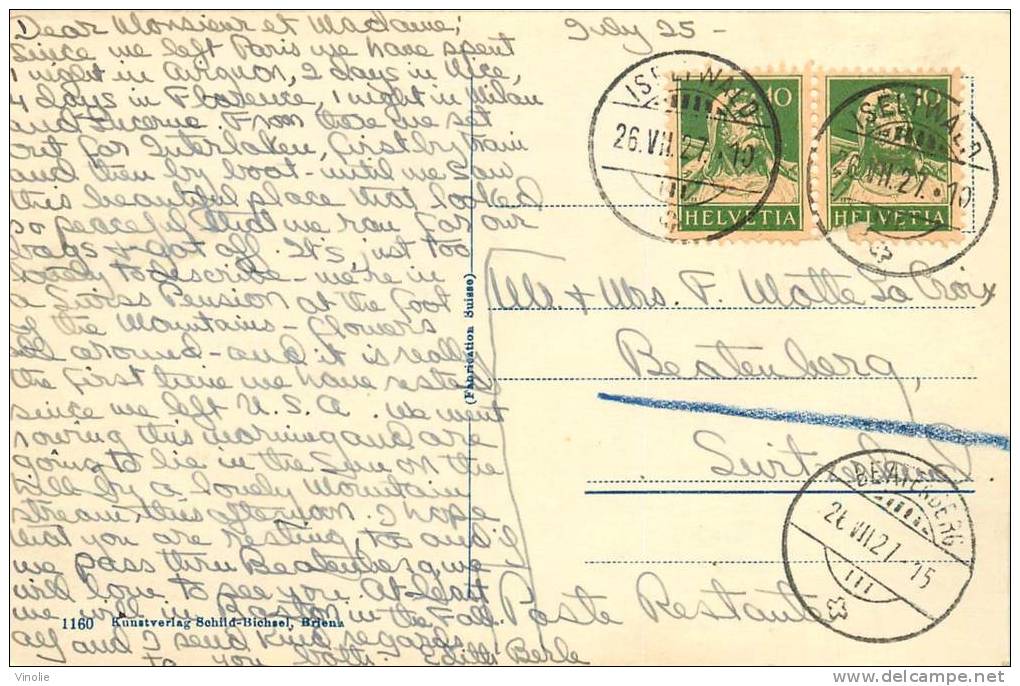 Dear Monsieur et Madame,
July 25 -
since we left Paris we have spent
1 night in Avignon, 2 days in Nice,
4 days in Florence, 1 night in Milan
and Lucerne. From there we set
out for Interlaken, first by train
and then by boat - until we saw
this beautiful place that looked
so peaceful that we ran for our
bags & got off. It's just too
lovely to describe - we're in
a Swiss Pension at the foot
of the mountains - flowers
all around - and it is really
the first time we have rested
since we left U.S.A. We went
rowing this morning and are
going to lie in the sun on the
hill by a lovely mountain
stream, this afternoon. I hope
that you are resting, too and if
we pass thru Beatenberg we
will love to see you. At least
we will in Boston in the Fall.
Alf and I send kind regards
to you both. Edith Berle
ISELTWALD
26.VII.27.-10
10
HELVETIA
ISELTWALD
26.VII.27.-10
10
HELVETIA
(Fabrication Suisse)
M. & Mrs. F. Matte La Croix
Beatenberg,
BEATENBERG
26.VII.27.-15
Poste Restante
1160 Kunstverlag Schild-Bichsel, Brienz
Vinolie
delcampe.net